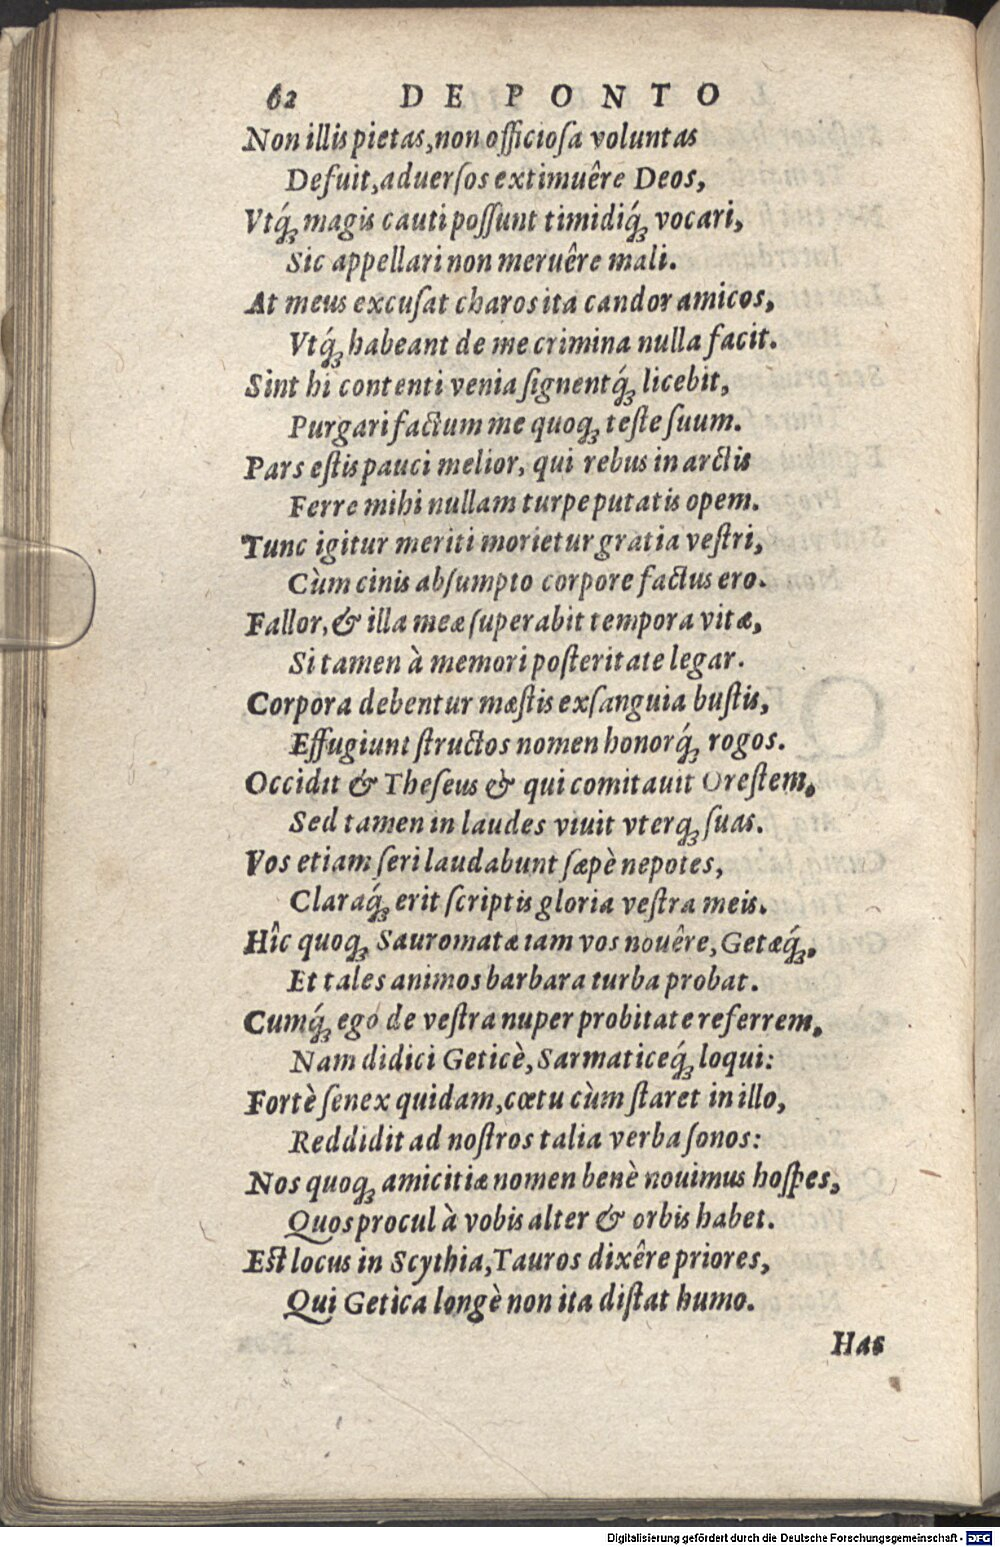 62 DE PONTO
Non illis pietas, non officioſa voluntas
Defuit, aduerſos extimuêre Deos,
Vtq́ꝫ magis cauti poſſunt timidiq́ꝫ vocari,
Sic appellari non meruêre mali.
At meus excuſat charos ita candor amicos,
Vtq́ꝫ habeant de me crimina nulla facit.
Sint hi contenti venia ſignentq́ꝫ licebit,
Purgari factum me quoqꝫ teſte ſuum.
Pars eſtis pauci melior, qui rebus in arctis
Ferre mihi nullam turpe putatis opem.
Tunc igitur meriti morietur gratia veſtri,
Cùm cinis abſumpto corpore factus ero.
Fallor, & illa meæ ſuperabit tempora vitæ,
Si tamen à memori poſteritate legar.
Corpora debentur mæſtis exſanguia buſtis,
Effugiunt ſtructos nomen honorq́ꝫ rogos.
Occidit & Theſeus & qui comitauit Oreſtem,
Sed tamen in laudes viuit vterqꝫ ſuas.
Vos etiam ſeri laudabunt ſæpè nepotes,
Claraq́ꝫ erit ſcriptis gloria veſtra meis.
Hîc quoqꝫ Sauromatæ iam vos nouêre, Getæq́ꝫ,
Et tales animos barbara turba probat.
Cumq́ꝫ ego de veſtra nuper probitate referrem,
Nam didici Geticè, Sarmaticeq́ꝫ loqui:
Fortè ſenex quidam, cœtu cùm ſtaret in illo,
Reddidit ad noſtros talia verba ſonos:
Nos quoqꝫ amicitiæ nomen benè nouimus hoſpes,
Quos procul à vobis alter & orbis habet.
Eſt locus in Scythia, Tauros dixêre priores,
Qui Getica longè non ita diſtat humo.
Has
Digitalisierung gefördert durch die Deutsche Forschungsgemeinschaft - DFG